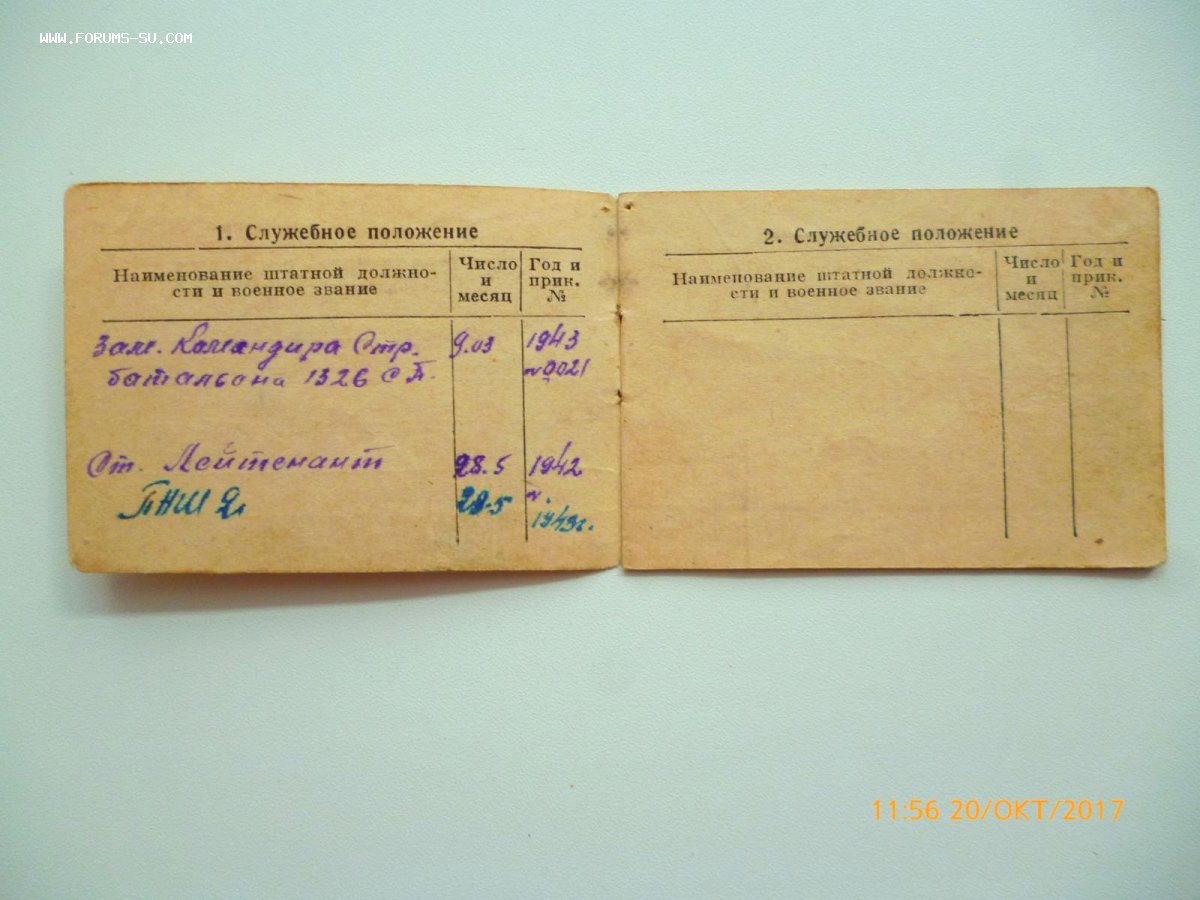 www.forums-su.com
1. Служебное положение
Наименование штатной должно-
сти и военное звание
Число
и
месяц
Год и
прик.
№
Зам. Командира Стр. 9.03 1943
батальона 1326 СП. №0021
Ст. Лейтенант 28.5 1942
№
ПНШ 2. 28.5 1943г.
2. Служебное положение
Наименование штатной должно-
сти и военное звание
Число
и
месяц
Год и
прик.
№
11:56 20/ОКТ/2017